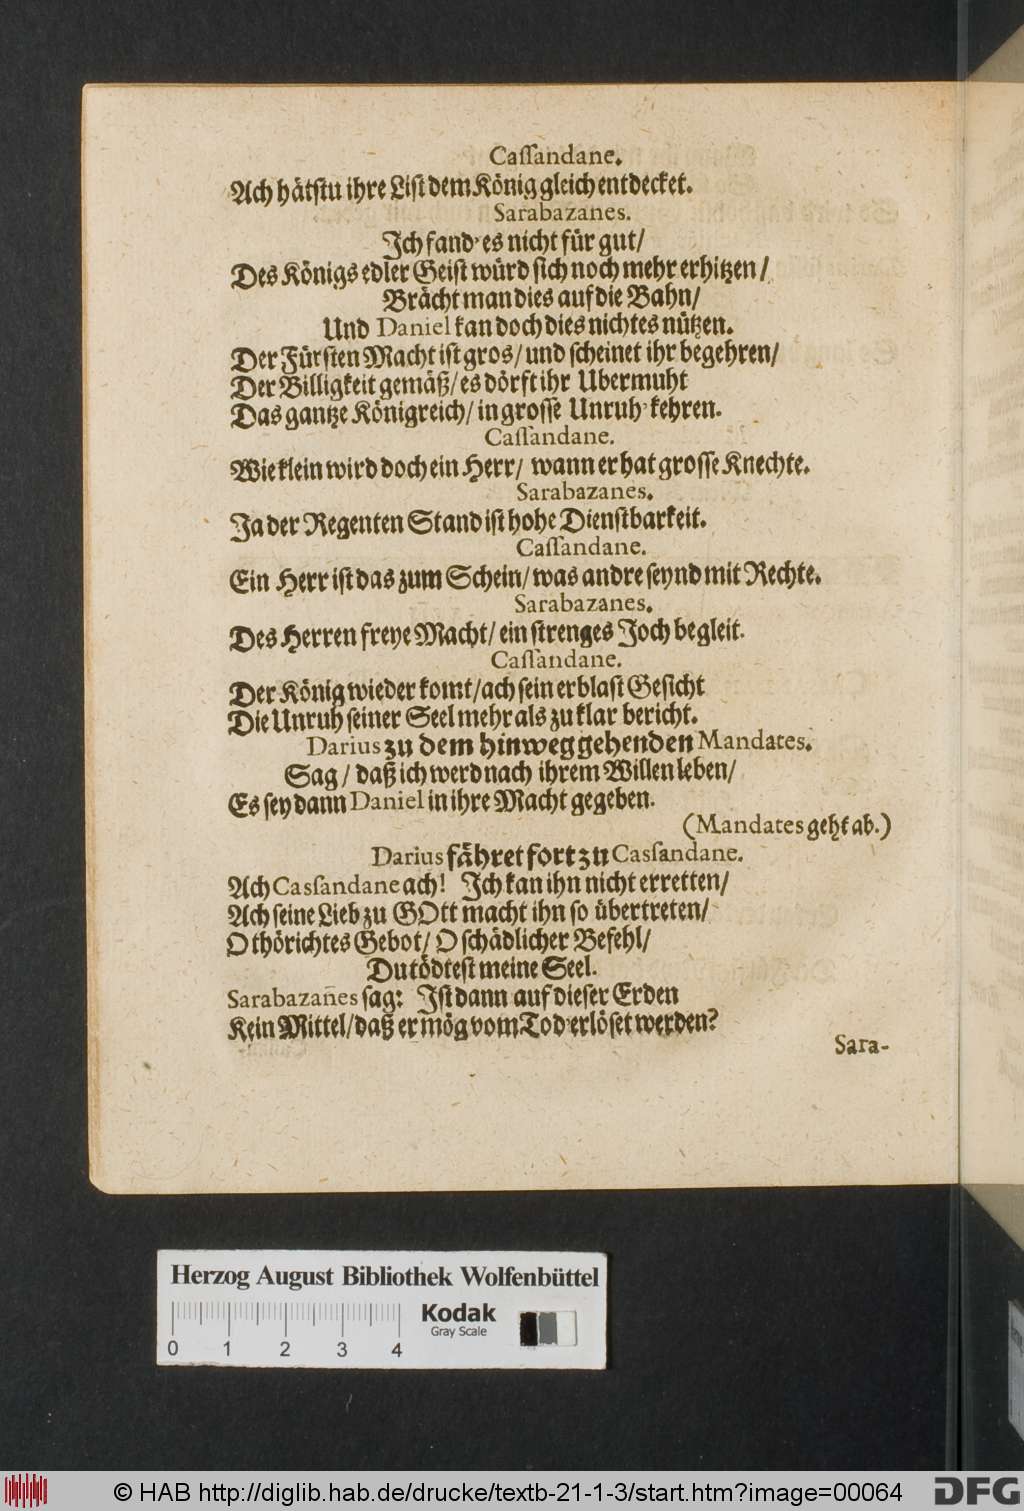 Caſſandane.
Ach hätſtu ihre Liſt dem König gleich entdecket.
Sarabazanes.
Ich fand' es nicht für gut/
Des Königs edler Geiſt würd ſich noch mehr erhitzen/
Brächt man dies auf die Bahn/
Und Daniel kan doch dies nichtes nützen.
Der Fürſten Macht iſt gros/ und ſcheinet ihr begehren/
Der Billigkeit gemäß/ es dörft ihr Ubermuht
Das gantze Königreich/ in groſſe Unruh' kehren.
Caſſandane.
Wie klein wird doch ein Herr/ wann er hat groſſe Knechte.
Sarabazanes.
Ja der Regenten Stand iſt hohe Dienſtbarkeit.
Caſſandane.
Ein Herr iſt das zum Schein/ was andre ſeynd mit Rechte.
Sarabazanes.
Des Herren freye Macht/ ein ſtrenges Joch begleit.
Caſſandane.
Der König wieder komt/ ach ſein erblaſt Geſicht
Die Unruh ſeiner Seel mehr als zu klar bericht.
Darius zu dem hinweg gehenden Mandates.
Sag/ daß ich werd nach ihrem Willen leben/
Es ſey dann Daniel in ihre Macht gegeben.
(Mandates geht ab.)
Darius fähret fort zu Casſandane.
Ach Casſandane ach! Ich kan ihn nicht erretten/
Ach ſeine Lieb zu GOtt macht ihn ſo übertreten/
O thörichtes Gebot/ O ſchädlicher Befehl/
Du tödteſt meine Seel.
Sarabazan̄es ſag: Iſt dann auf dieſer Erden
Kein Mittel/ daß er mög vom Tod' erlöſet werden?
Sara-
Herzog August Bibliothek Wolfenbüttel
Kodak
Gray Scale
0 1 2 3 4
© HAB http://diglib.hab.de/drucke/textb-21-1-3/start.htm?image=00064
DFG